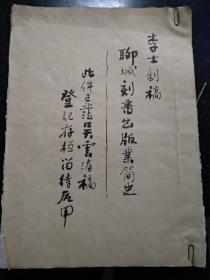 李士钊稿
聊城刻书出版业简史
此件已蒋吴云涛稿
登记存档留待后用